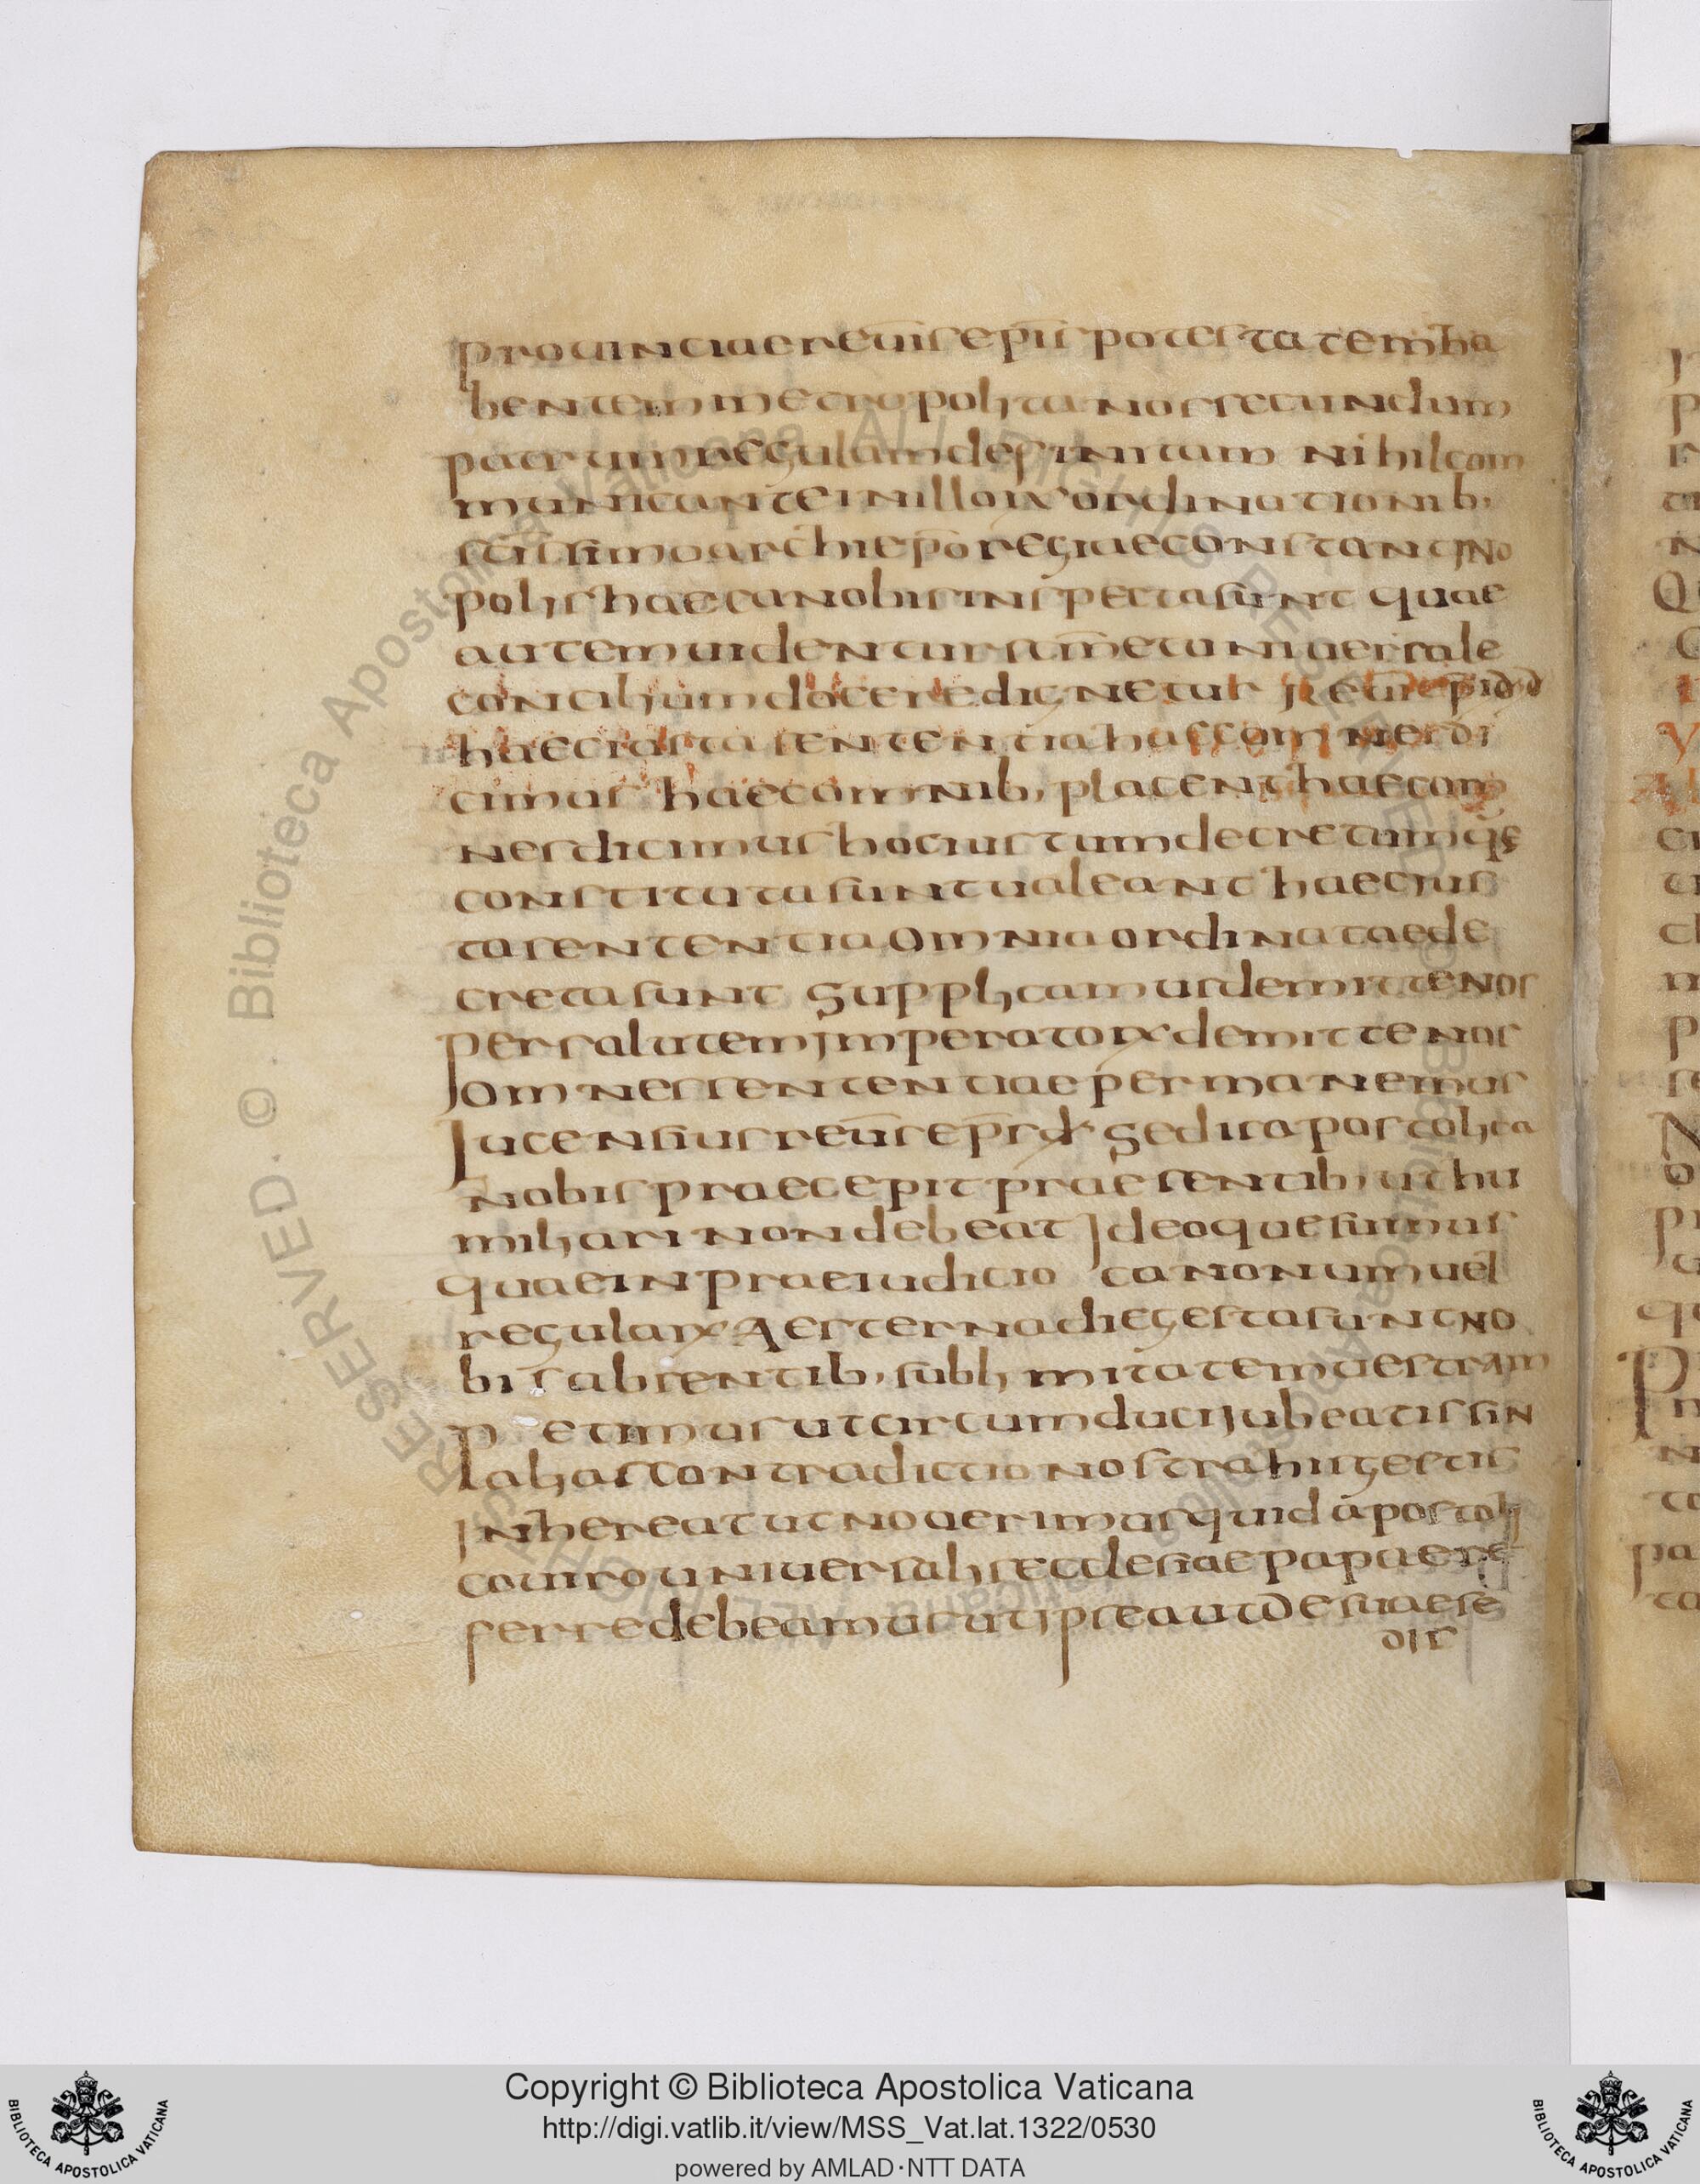 prouinciae reūīs ep̄īs potestatem ha
bentem metropolitanos secundum
patrum regulam definitam nihil com
municante in illoꝝ ordinationib,
sc̄issimo archiep̄o regiae constantino
polis haec a nobis inspecta sunt quae
autem uidentur sc̄m et uniuersale
concilium docere dignetur
haec iusta sententia has com nes di
cimus haec omnib, placent haec om
nes dicimus hoc iustum decretum q̄e
constituta sunt ualeant haec ius
ta sententia omnia ordinatae de
creta sunt Supplicamus demitte nos
per salutem imperatoꝝ demitte nos
Jomnes sententiae permanemus
Lucensius reūs ep̄s dx Sedis apostolica
nobis praecepit praesentib, ut hu
miliari non debeat Ideoque simus
quae in praeiudicio canonum uel
regulaꝝ Aesterna die gesta sunt no
bis absentib, sublimitatem uestram
petimus ut circumduci jubeatis sin
Lalias contradictio nostra his gestis
Inhereat ut nouerimus quid apostoli
co uiro uniuersalis ecclesiae papae re
ferre debeamus ut ipse aut de suae se
dis
Biblioteca Apostolica Vaticana ALL RIGHTS RESERVED. © Biblioteca Apostolica Vaticana ALL RIGHTS RESERVED. ©
BIBLIOTECA APOSTOLICA VATICANA
Copyright © Biblioteca Apostolica Vaticana
http://digi.vatlib.it/view/MSS_Vat.lat.1322/0530
powered by AMLAD·NTT DATA
BIBLIOTECA APOSTOLICA VATICANA